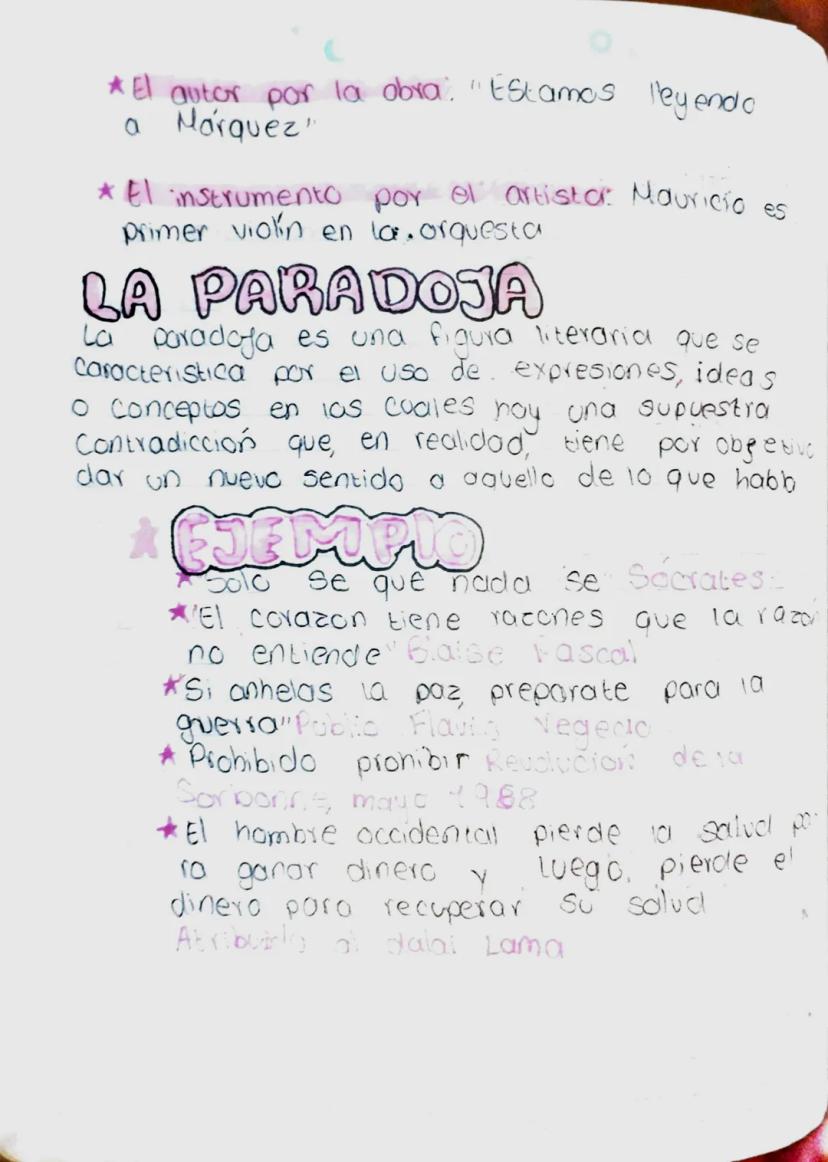 ★ El autor por la obra: "Estamos leyendo
a Márquez"
★ El instrumento por el artista: Mauricio es
primer violín en la orquesta
LA PARADOJA
La paradoja es una figura literaria que se
caracteristica por el uso de expresiones, ideas
o conceptos en los cuales hay una supuestra
contradiccion que, en realidad, tiene por objetivo
dar un nuevo sentido a aquello de lo que habla
★ EJEMPlO
★ Solo se que nada se Socrates
★ "El corazon tiene razones que la razon
no entiende" Blaise Pascal
★ "Si anhelas la paz, preparate para la
guerra" Publio Flavio Vegecio
★ Prohibido prohibir Revolucion de la
Sorbonne, mayo 1968
★ El hombre occidental pierde la salud pa
ra ganar dinero y luego, pierde el
dinero para recuperar su salud
al dalai Lama